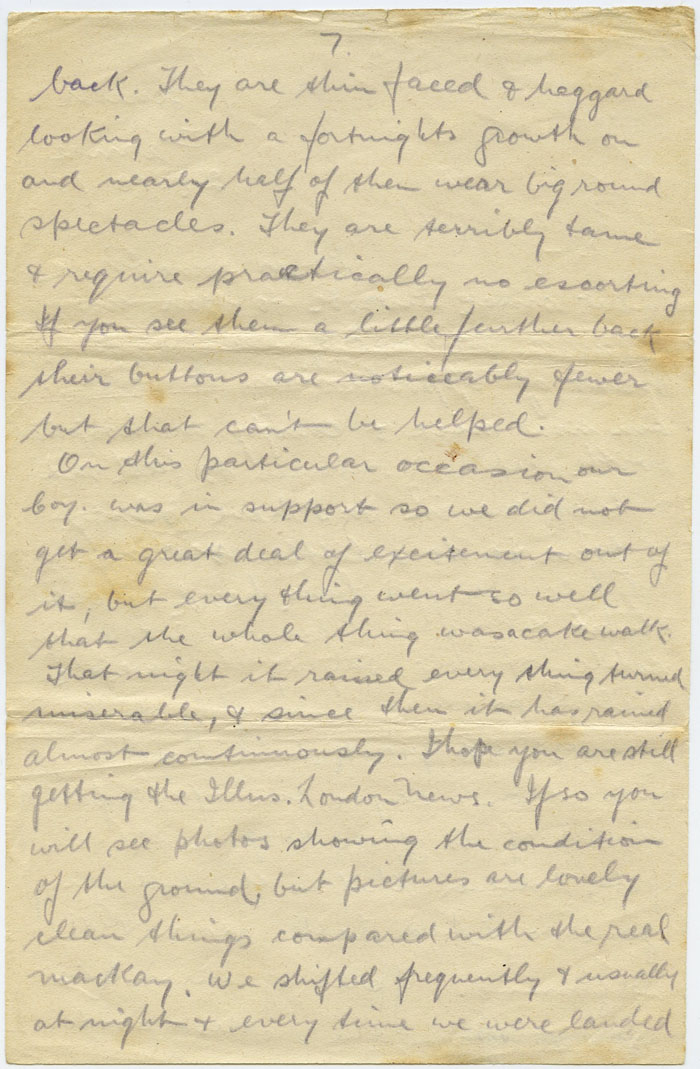 7
back. They are thin faced & heggard
looking with a fortnights growth on
and nearly half of them wear big round
spectacles. They are terribly tame
& require practically no escorting
If you see them a little further back
their buttons are noticeably fewer
but that can't be helped.
On this particular occasion our
Coy. was in support so we did not
get a great deal of excitement out of
it, but every thing went so well
that the whole thing was a cake walk.
That night it rained every thing turned
miserable, & since then it has rained
almost continuously. I hope you are still
getting the Illus. London News. If so you
will see photos showing the condition
of the ground, but pictures are lovely
clean things compared with the real
mackay. We shifted frequently & usually
at night & every time we were landed